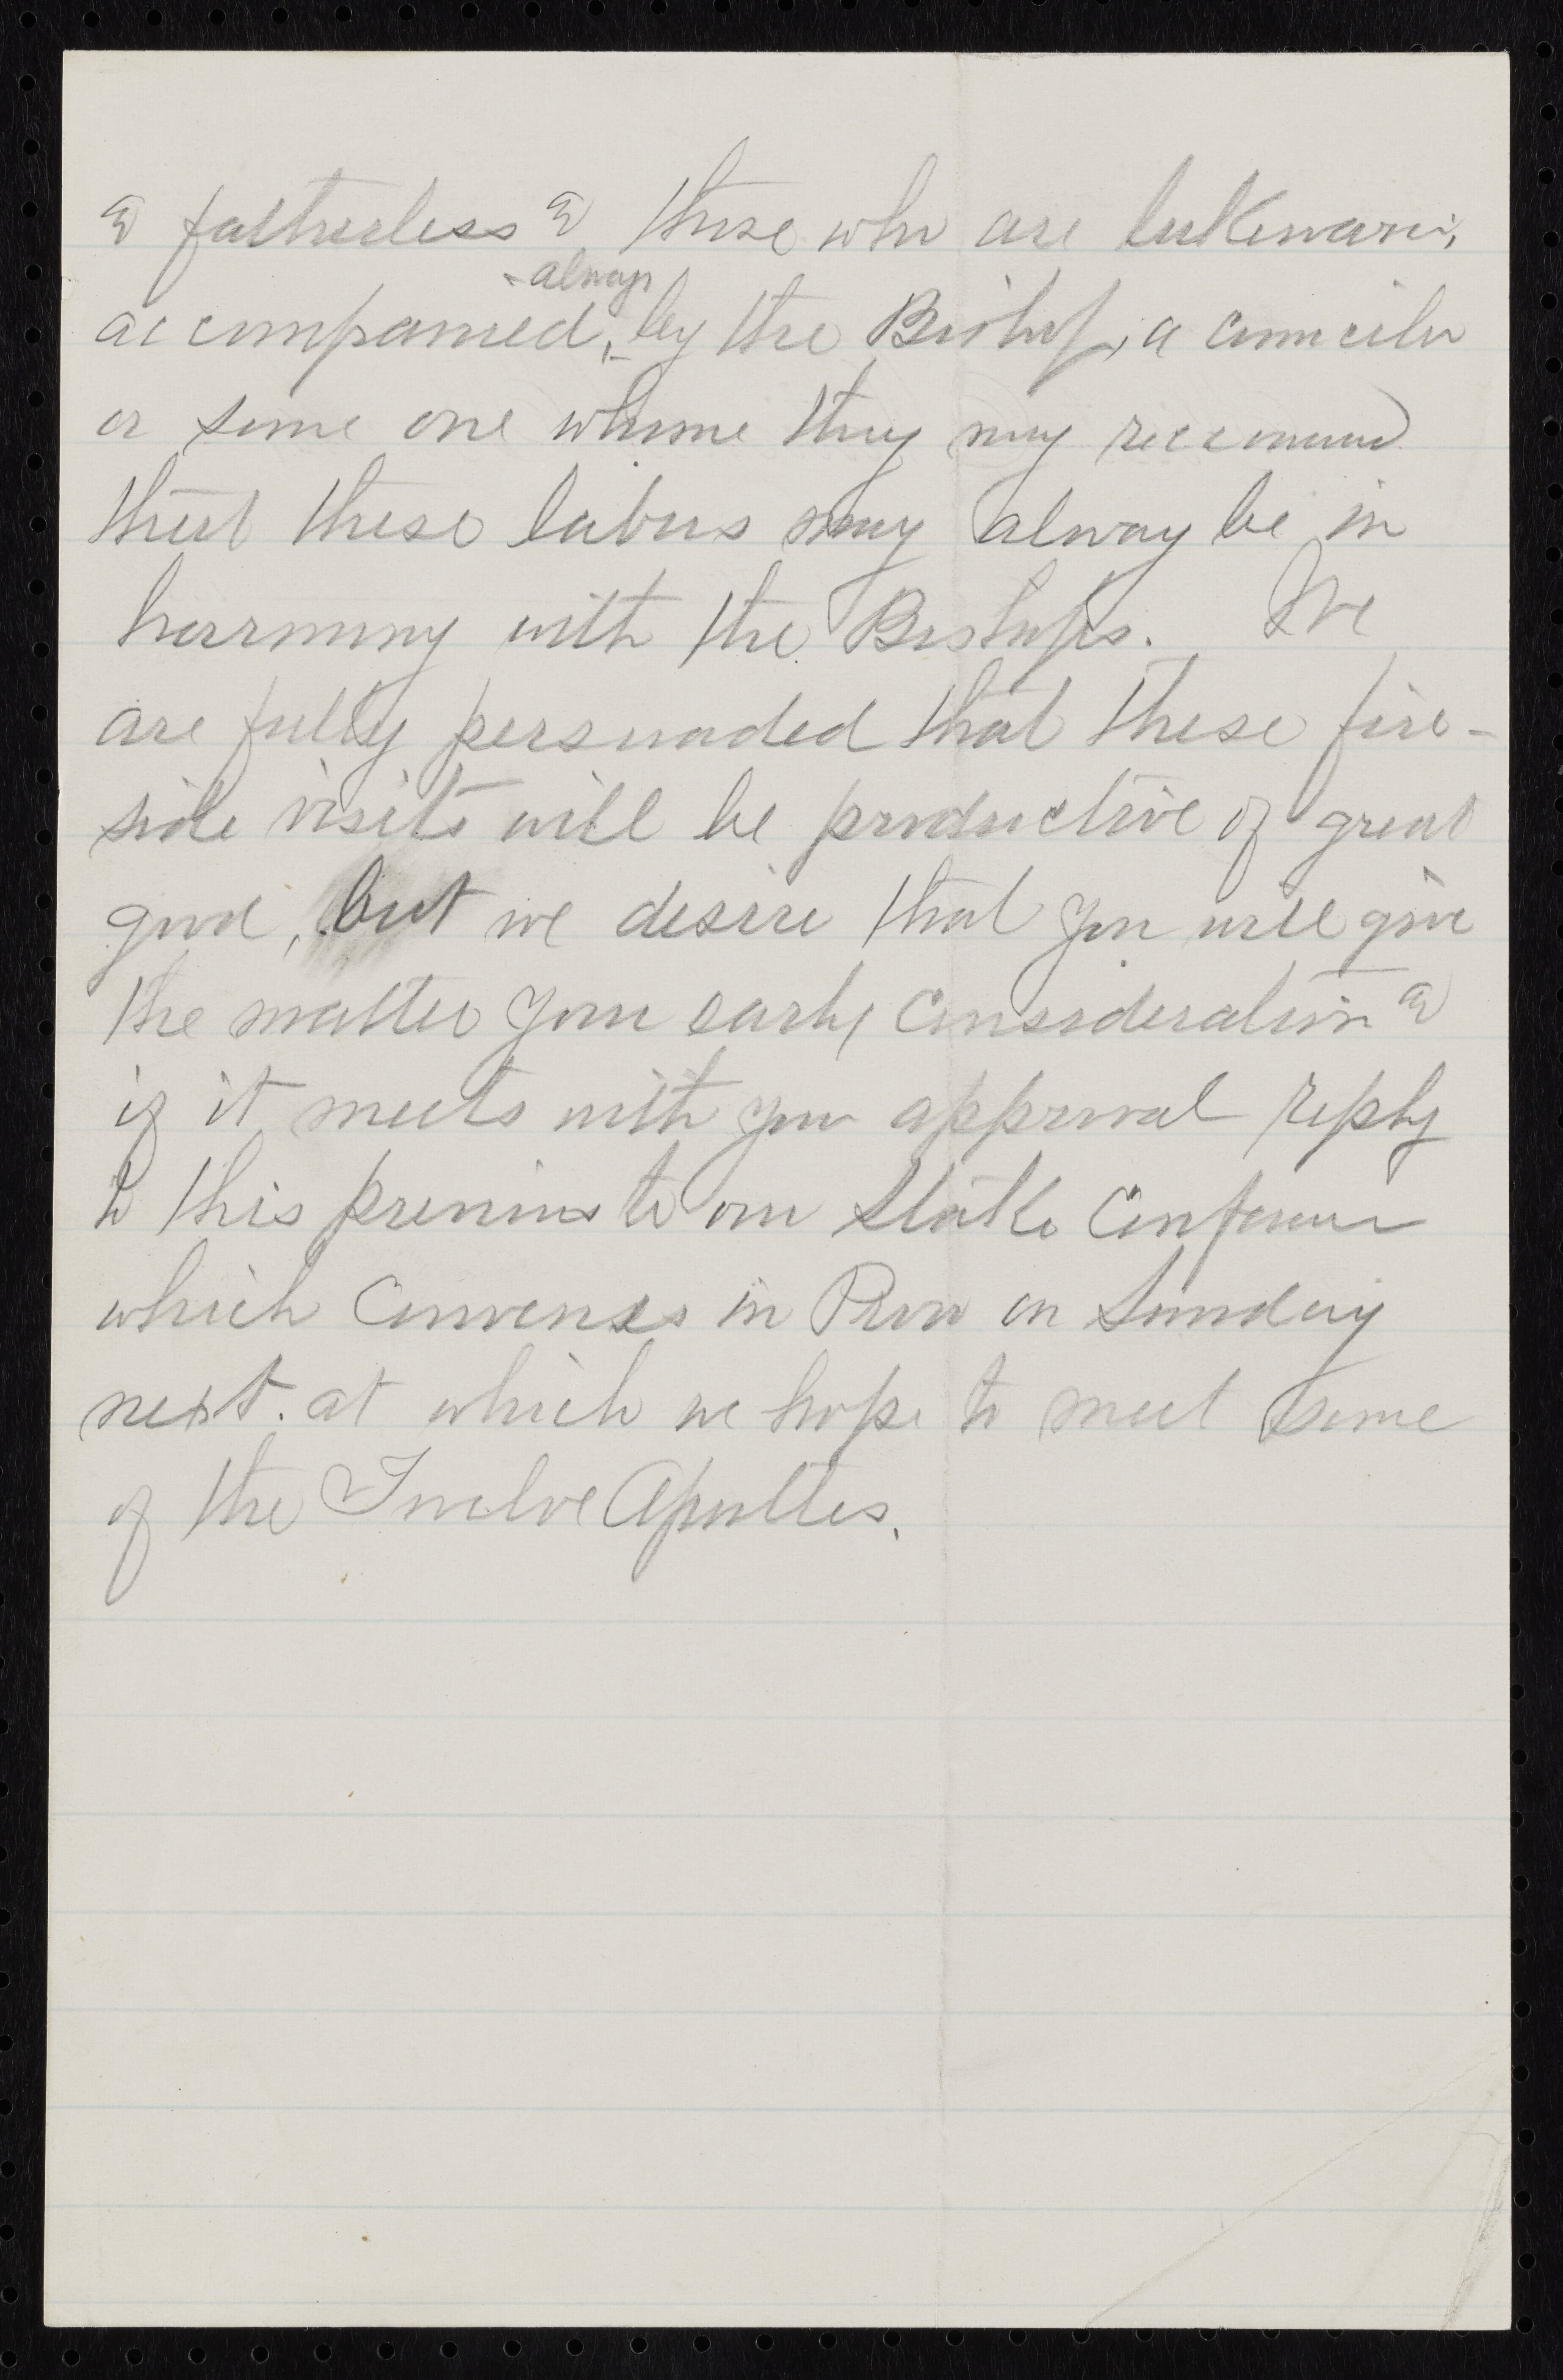 & fatherless & those who are lukewarm,
always
accompanied, by the Bishop, a councilor
or some one whome they may reccomend
that these labors may alway be in
harmony with the Bishops. We
are fully persuaded that these fire-
side visits will be productive of great
good, but we desire that you will give
the matter your early consideration &
if it meets with your approval reply
to this previous to our Stake Conference
which Convenes in Provo on Sunday
next. at which we hope to meet some
of the Twelve Apostles.